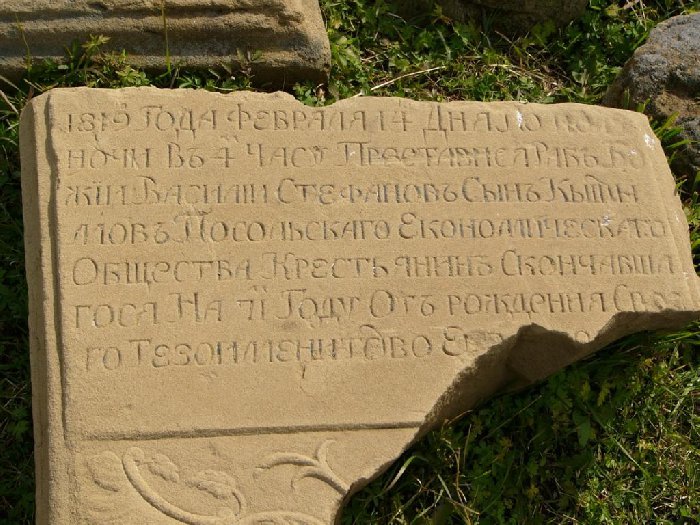 1819 ГОДА ФЕВРАЛЯ 14 ДНЯ ПО ПОЛ
НОЧИ ВЪ 4 ЧАСУ ПРЕСТАВИСЯ РАБЪ БО
ЖІИ ВАСИЛІИ СТЕФАНОВЪ СЫНЪ
ПОСОЛЬСКАГО ЕКОНОМИЧЕСКАГО
ОБЩЕСТВА КРЕСТЬЯНИНЪ СКОНЧАВША
ГОСЯ НА 71 ГОДУ ОТЪ РОЖДЕНИЯ СВОЕ
ГО ТЕЗОИМЕНИТСТВО